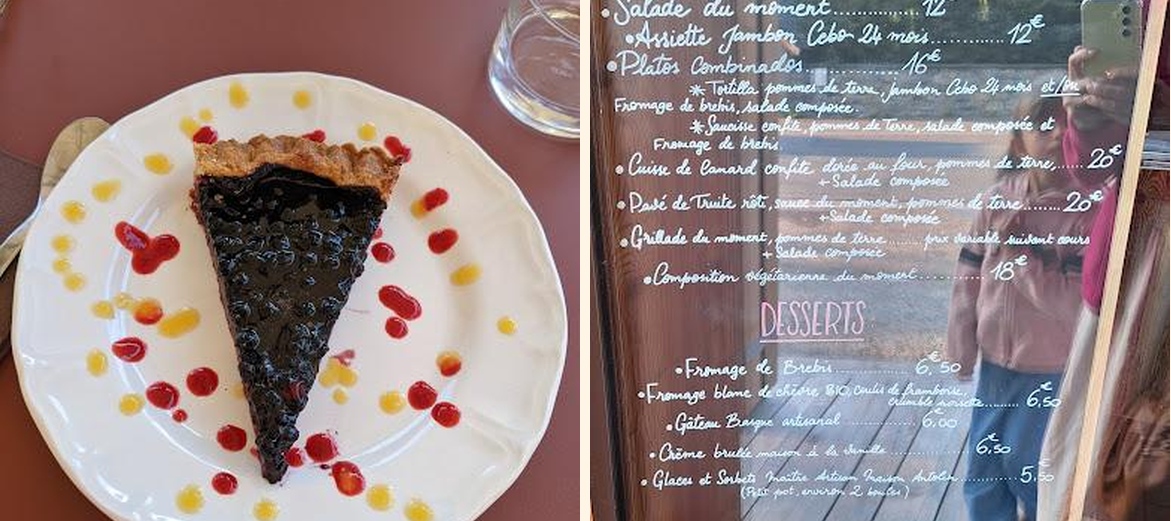 • Salade du moment.............. 12
• Assiette Jambon Cebo 24 mois............ 12€
• Platos Combinados............... 16€
* Tortilla pommes de terre, Jambon Cebo 24 mois et/ou
Fromage de brebis, salade composée.
* Saucisse confite, pommes de Terre, salade composée et
Fromage de brebis.
• Cuisse de Canard confite dorée au four, pommes de terre,...... 20€
+ Salade composée
• Pavé de Truite rôti, sauce du moment, pommes de terre........ 20€
+ Salade composée
• Grillade du moment, pommes de terre........ prix variable suivant cours
+ Salade composée
• Composition végétarienne du moment............... 18€
DESSERTS
• Fromage de Brebis............... 6,€50
• Fromage blanc de chèvre BIO, coulis de framboise,
crumble noisette......... 6,€50
• Gâteau Basque artisanal............... 6,€00
• Crème brulée maison à la vanille............... 6,€50
• Glaces et Sorbets Maître Artisan Maison Antolin............... 5,€50
(Petit pot, environ 2 boules)